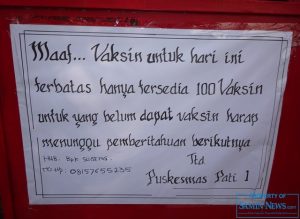 Maaf... Vaksin untuk hari ini
terbatas hanya tersedia 100 Vaksin
untuk yang belum dapat vaksin harap
menunggu pemberitahuan berikutnya
Ttd
Puskesmas Pati 1
PROPERTY OF
SAMIN NEWS.com